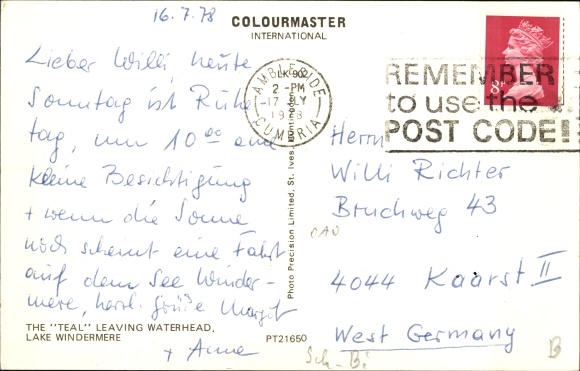 16.7.78
COLOURMASTER
INTERNATIONAL
Lieber Willi, heute
Sonntag ist Ruhe
tag, um 10 00 eine
kleine Besichtigung
+ wenn die Sonne
noch scheint eine Fahrt
auf dem See Winder-
mere, herzl. Grüße Margit
+ Anne
THE "TEAL" LEAVING WATERHEAD,
LAKE WINDERMERE
PT21650
Photo Precision Limited, St. Ives, Huntingdon
AMBLESIDE
2 -PM
17 JLY
1978
CUMBRIA
REMEMBER
to use the
POST CODE!
8P
Herrn
Willi Richter
Bruchweg 43
4044 Kaarst II
West Germany
Sch-Bi
B